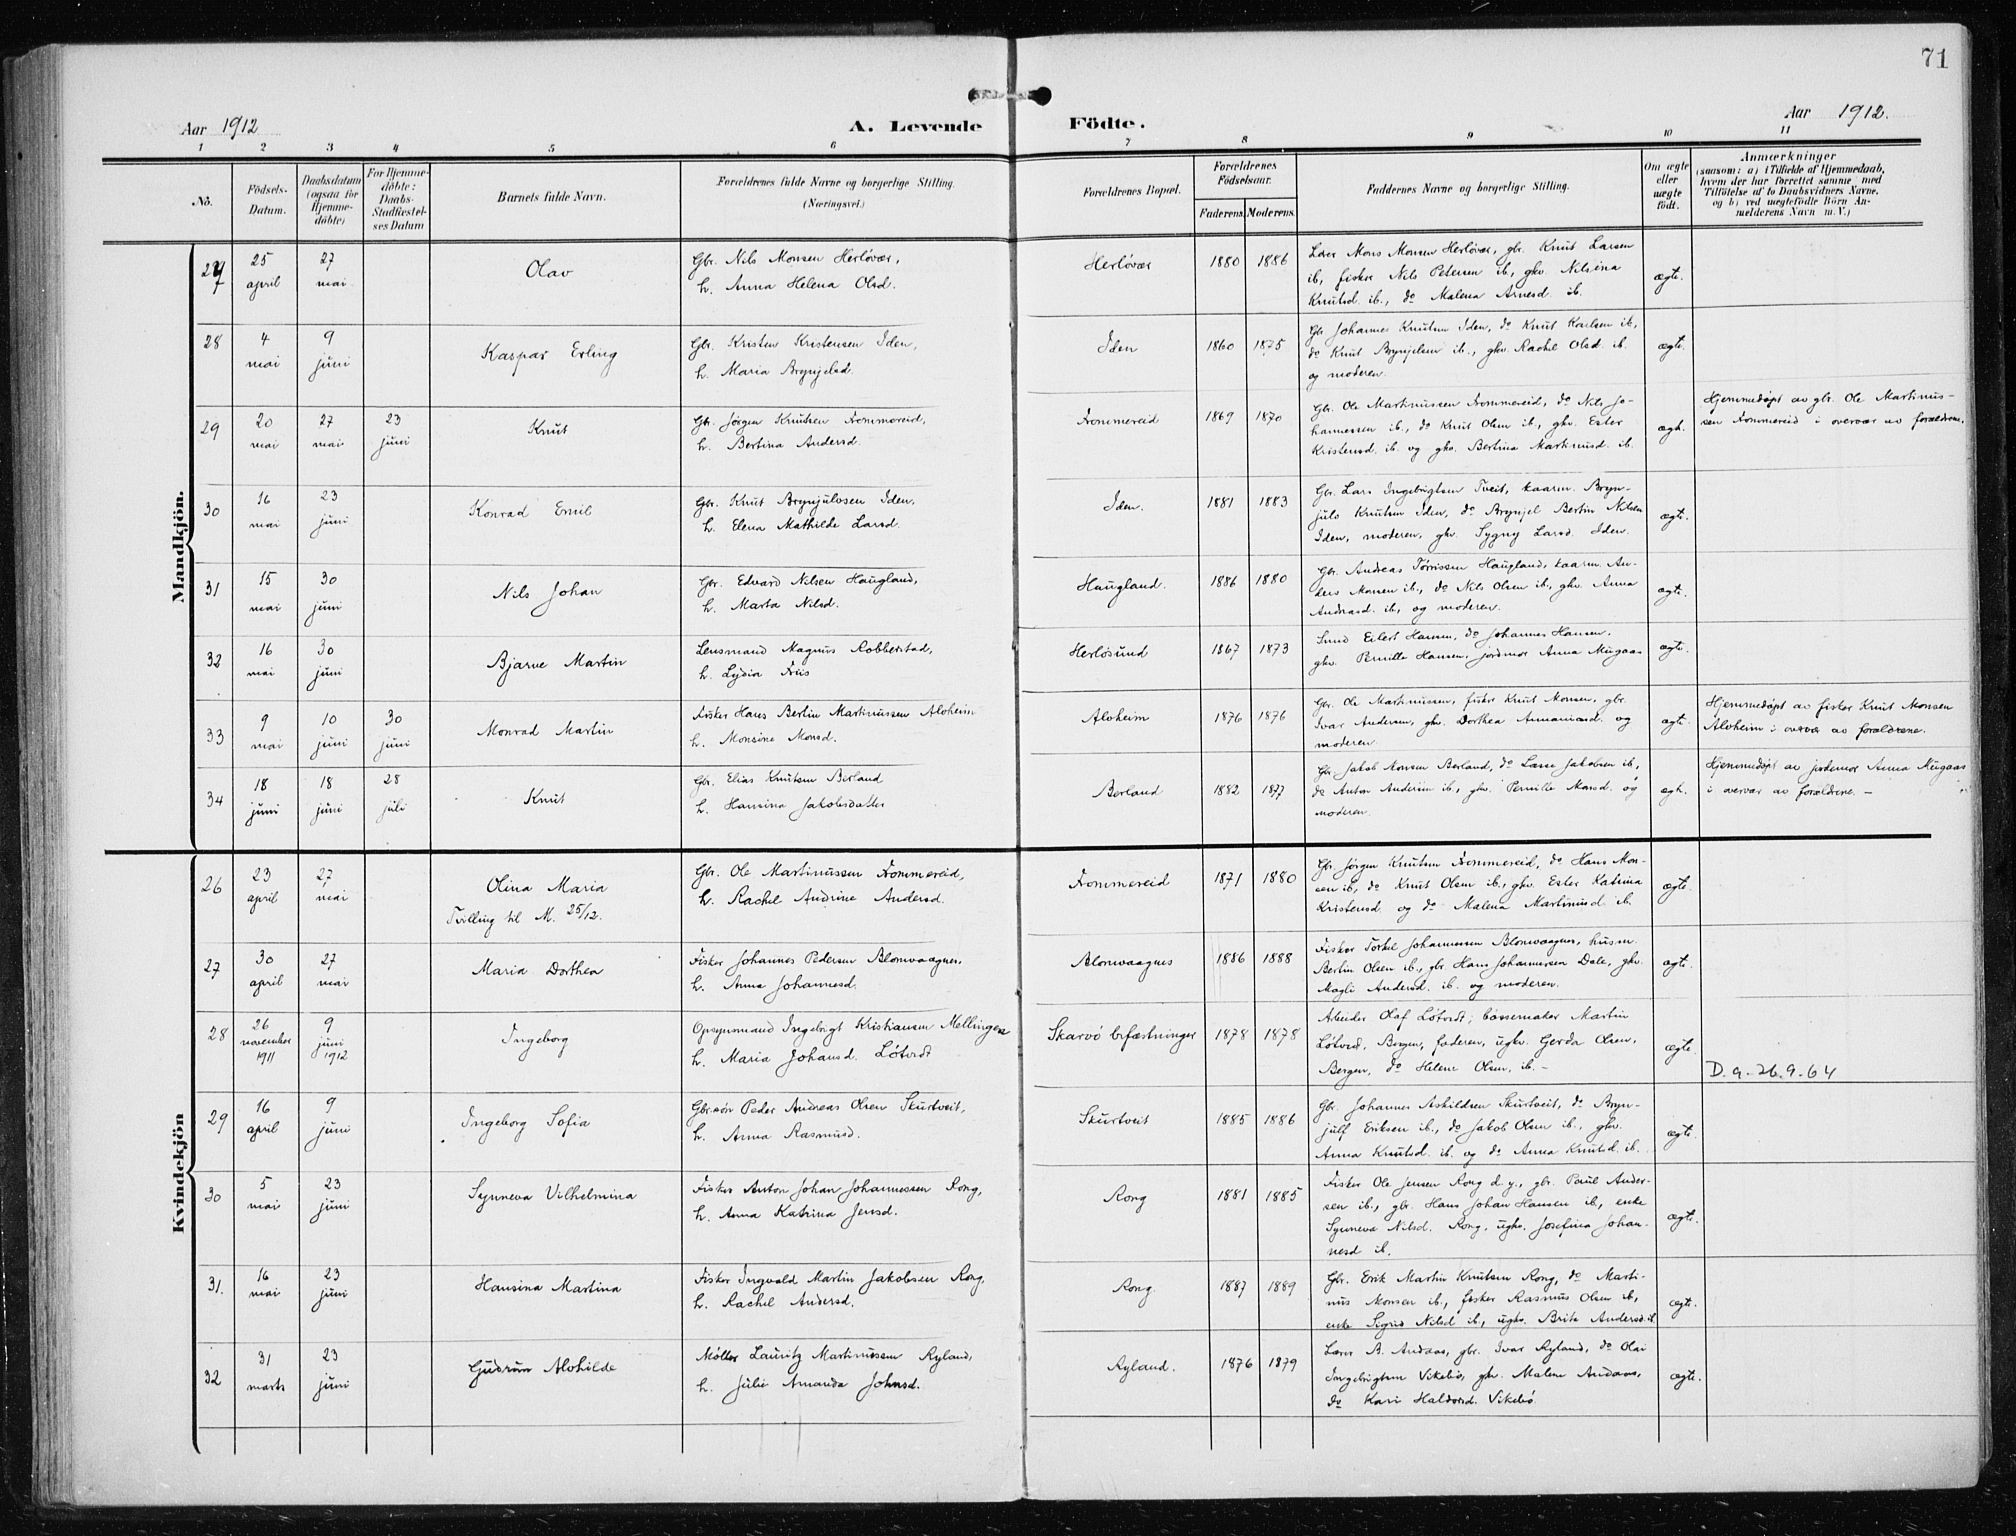 71
Aar 1912
A. Levende Födte.
Aar 1912.
1 2 3 4 5 6 7 8 9 10 11
No.
Födsels-
Datum.
Daabsdatum
(ogsaa for
Hjemme-
döbte)
For Hjemme-
döbte:
Daabs-
Stadfæstel-
ses Datum
Barnets fulde Navn.
Forældrenes fulde Navne og borgerlige Stilling.
(Næringsvei.)
Forældrenes Bopæl.
Forældrenes
Födselsaar.
Faderens. Moderens.
Faddernes Navne og borgerlige Stilling.
Om ægte
eller
uægte
födt.
Anmærkninger
(saasom: a) i Tilfælde af Hjemmedaab,
hvem der har forrettet samme med
Tilföielse af to Daabsvidners Navne,
og b) ved uægtefödte Börn An-
melderens Navn m. V.)
Mandkjön.
27
25
april
27
mai
Olav
Gbr. Nils Monsen Herløvær,
h. Anna Helena Olsd.
Herløvær
1880 1886
Lærer Mons Monsen Herløvær, gbr. Knut Larsen
ib, fisker Nils Petersen ib., gkv. Nilsina
Knutsd. ib., do Malena Arnesd. ib.
ægte.
28
4
mai
9
juni
Kaspar Erling
Gbr. Kristen Kristensen Iden,
h. Maria Brynjelsd.
Iden
1860 1875
Gbr Johannes Knutsen Iden, do Knut Karlsen ib,
do Knut Brynjelsen ib., gkv. Rachel Olsd. ib.
og moderen.
ægte.
29
20
mai
27
mai
23
juni
Knut
Gbr. Jørgen Knutsen Frommereid,
h. Bertina Andersd.
Frommereid
1869 1870
Gbr. Ole Martinussen Frommereid, do Nils Jo-
hannessen ib., do Knut Olsen ib., gkv. Ester
Kristensd. ib. og gkv. Bertina Martinusd. ib.
ægte.
Hjemmedøpt av gbr. Ole Martinus-
sen Frommereid i overvær av forældrene.
30
16
mai
23
juni
Konrad Emil
Gbr. Knut Brynjulvsen Iden,
h. Elena Mathilde Larsd.
Iden.
1881 1883
Gbr. Lars Ingebrigtsen Tveit, kaarm. Bryn-
julv Knutsen Iden, do Brynjel Bertin Nilsen
Iden, moderen, gkv. Sygny Larsd. Iden.
ægte.
31
15
mai
30
juni
Nils Johan
Gbr. Edvard Nilsen Haugland,
h. Marta Nilsd.
Haugland.
1886 1880
Gbr. Andreas Tørrissen Haugland, kaarm. An-
ders Monsen ib., do Nils Olsen ib., gkv. Anna
Andreasd. ib., og moderen.
ægte.
32
16
mai
30
juni
Bjarne Martin
Lensmand Magnus Robberstad,
h. Lydia Friis
Herløsund
1867 1873
Eilert Hansen, do Johannes Hansen,
gkv. Pernille Hansen, jordmor Anna Mugaas
ægte.
33
9
mai
10
juni
30
juni
Monrad Martin
Fisker Hans Bertin Martinussen Alvheim
h. Monsine Monsd.
Alvheim
1876 1876
Gbr. Ole Martinussen, fisker Knut Monsen, gbr.
Ivar Andersen, gkv. Dorthea Annaniasd. og
moderen
ægte.
Hjemmedøpt av fisker Knut Monsen
Alvheim i overvær av forældrene.
34
18
juni
18
juni
28
juli
Knut
Gbr. Elias Knutsen Berland
h. Hansina Jakobsdatter
Berland
1882 1877
Gbr Jakob Monsen Berland, do Lasse Jakobsen ib,
do Anton Andersen ib., gkv. Pernille Monsd. og
moderen.
ægte.
Hjemmedøpt av jordmor Anna Mugaas
i overvær av forældrene. —
Kvindekjön
26
23
april
27
mai
Olina Maria
Tvilling til M. 25/12.
Gbr. Ole Martinussen Frommereid,
h. Rachel Andrine Andersd.
Frommereid
1871 1880
Gbr. Jørgen Knutsen Frommereid, do Hans Mon-
sen ib, do Knut Olsen ib., gkv. Ester Katrina
Kristensd. og do Malena Martinusd. ib.
ægte.
27
30
april
27
mai
Maria Dorthea
Fisker Johannes Pedersen Blomvaagnes,
h. Anna Johannesd.
Blomvaagnes
1886 1888
Fisker Torkel Johannessen Blomvaagnes, husm.
Bertin Olsen ib., gbr. Hans Johannessen Dale, gkv.
Magli Andersd. ib. og moderen.
ægte.
28
26
november
1911
9
juni
1912
Ingeborg
Opsynsmand Ingebrigt Kristiansen Mellingen
h. Maria Johansd. Løtvedt
Skarvø befæstninger
1878 1878
Arbeider Olaf Løtvedt, bøssemaker Martin
Løtvedt, Bergen, faderen, ugkv. Gerda Olsen,
Bergen, do Helene Olsen, ib. —
ægte.
D.a. 26.9.64
29
16
april
9
juni
Ingeborg Sofia
Gbr.søn Peder Andreas Olsen Skurtveit,
h. Anna Rasmusd.
Skurtveit
1885 1886
Gbr. Johannes Askildsen Skurtveit, do Bryn-
julf Eriksen ib., do Jakob Olsen ib., gkv.
Anna Knutsd. ib. og do Anna Knutsd. ib.
ægte.
30
5
mai
23
juni
Synneva Vilhelmina
Fisker Anton Johan Johannessen Rong,
h. Anna Katrina Jensd.
Rong
1881 1885
Fisker Ole Jensen Rong d.y., gbr. Paul Ander-
sen ib., gbr. Hans Johan Hansen ib., enke
Synneva Nilsd. Rong, ugkv. Josefina Johan-
nesd ib.
ægte.
31.
16
mai
23
juni
Hansina Martina
Fisker Ingvald Martin Jakobsen Rong,
h. Rachel Andersd.
Rong.
1887 1889
Gbr. Erik Martin Knutsen Rong, do Marti-
nus Monsen ib., fisker Rasmus Olsen ib,
enke Sigrid Nilsd ib., ugkv. Brita Andersd. ib
ægte.
32
31
marts
23
juni
Gudrun Alvhilde
Møller Lauritz Martinussen Ryland,
h. Julie Amanda Johnsd.
Ryland.
1876 1879
Lærer A. Andaas, gbr. Ivar Ryland, do Olai
Ingebrigtsen Vikebø, gkv. Malene Andaas,
do Kari Haldorsd. Vikebø.
ægte.